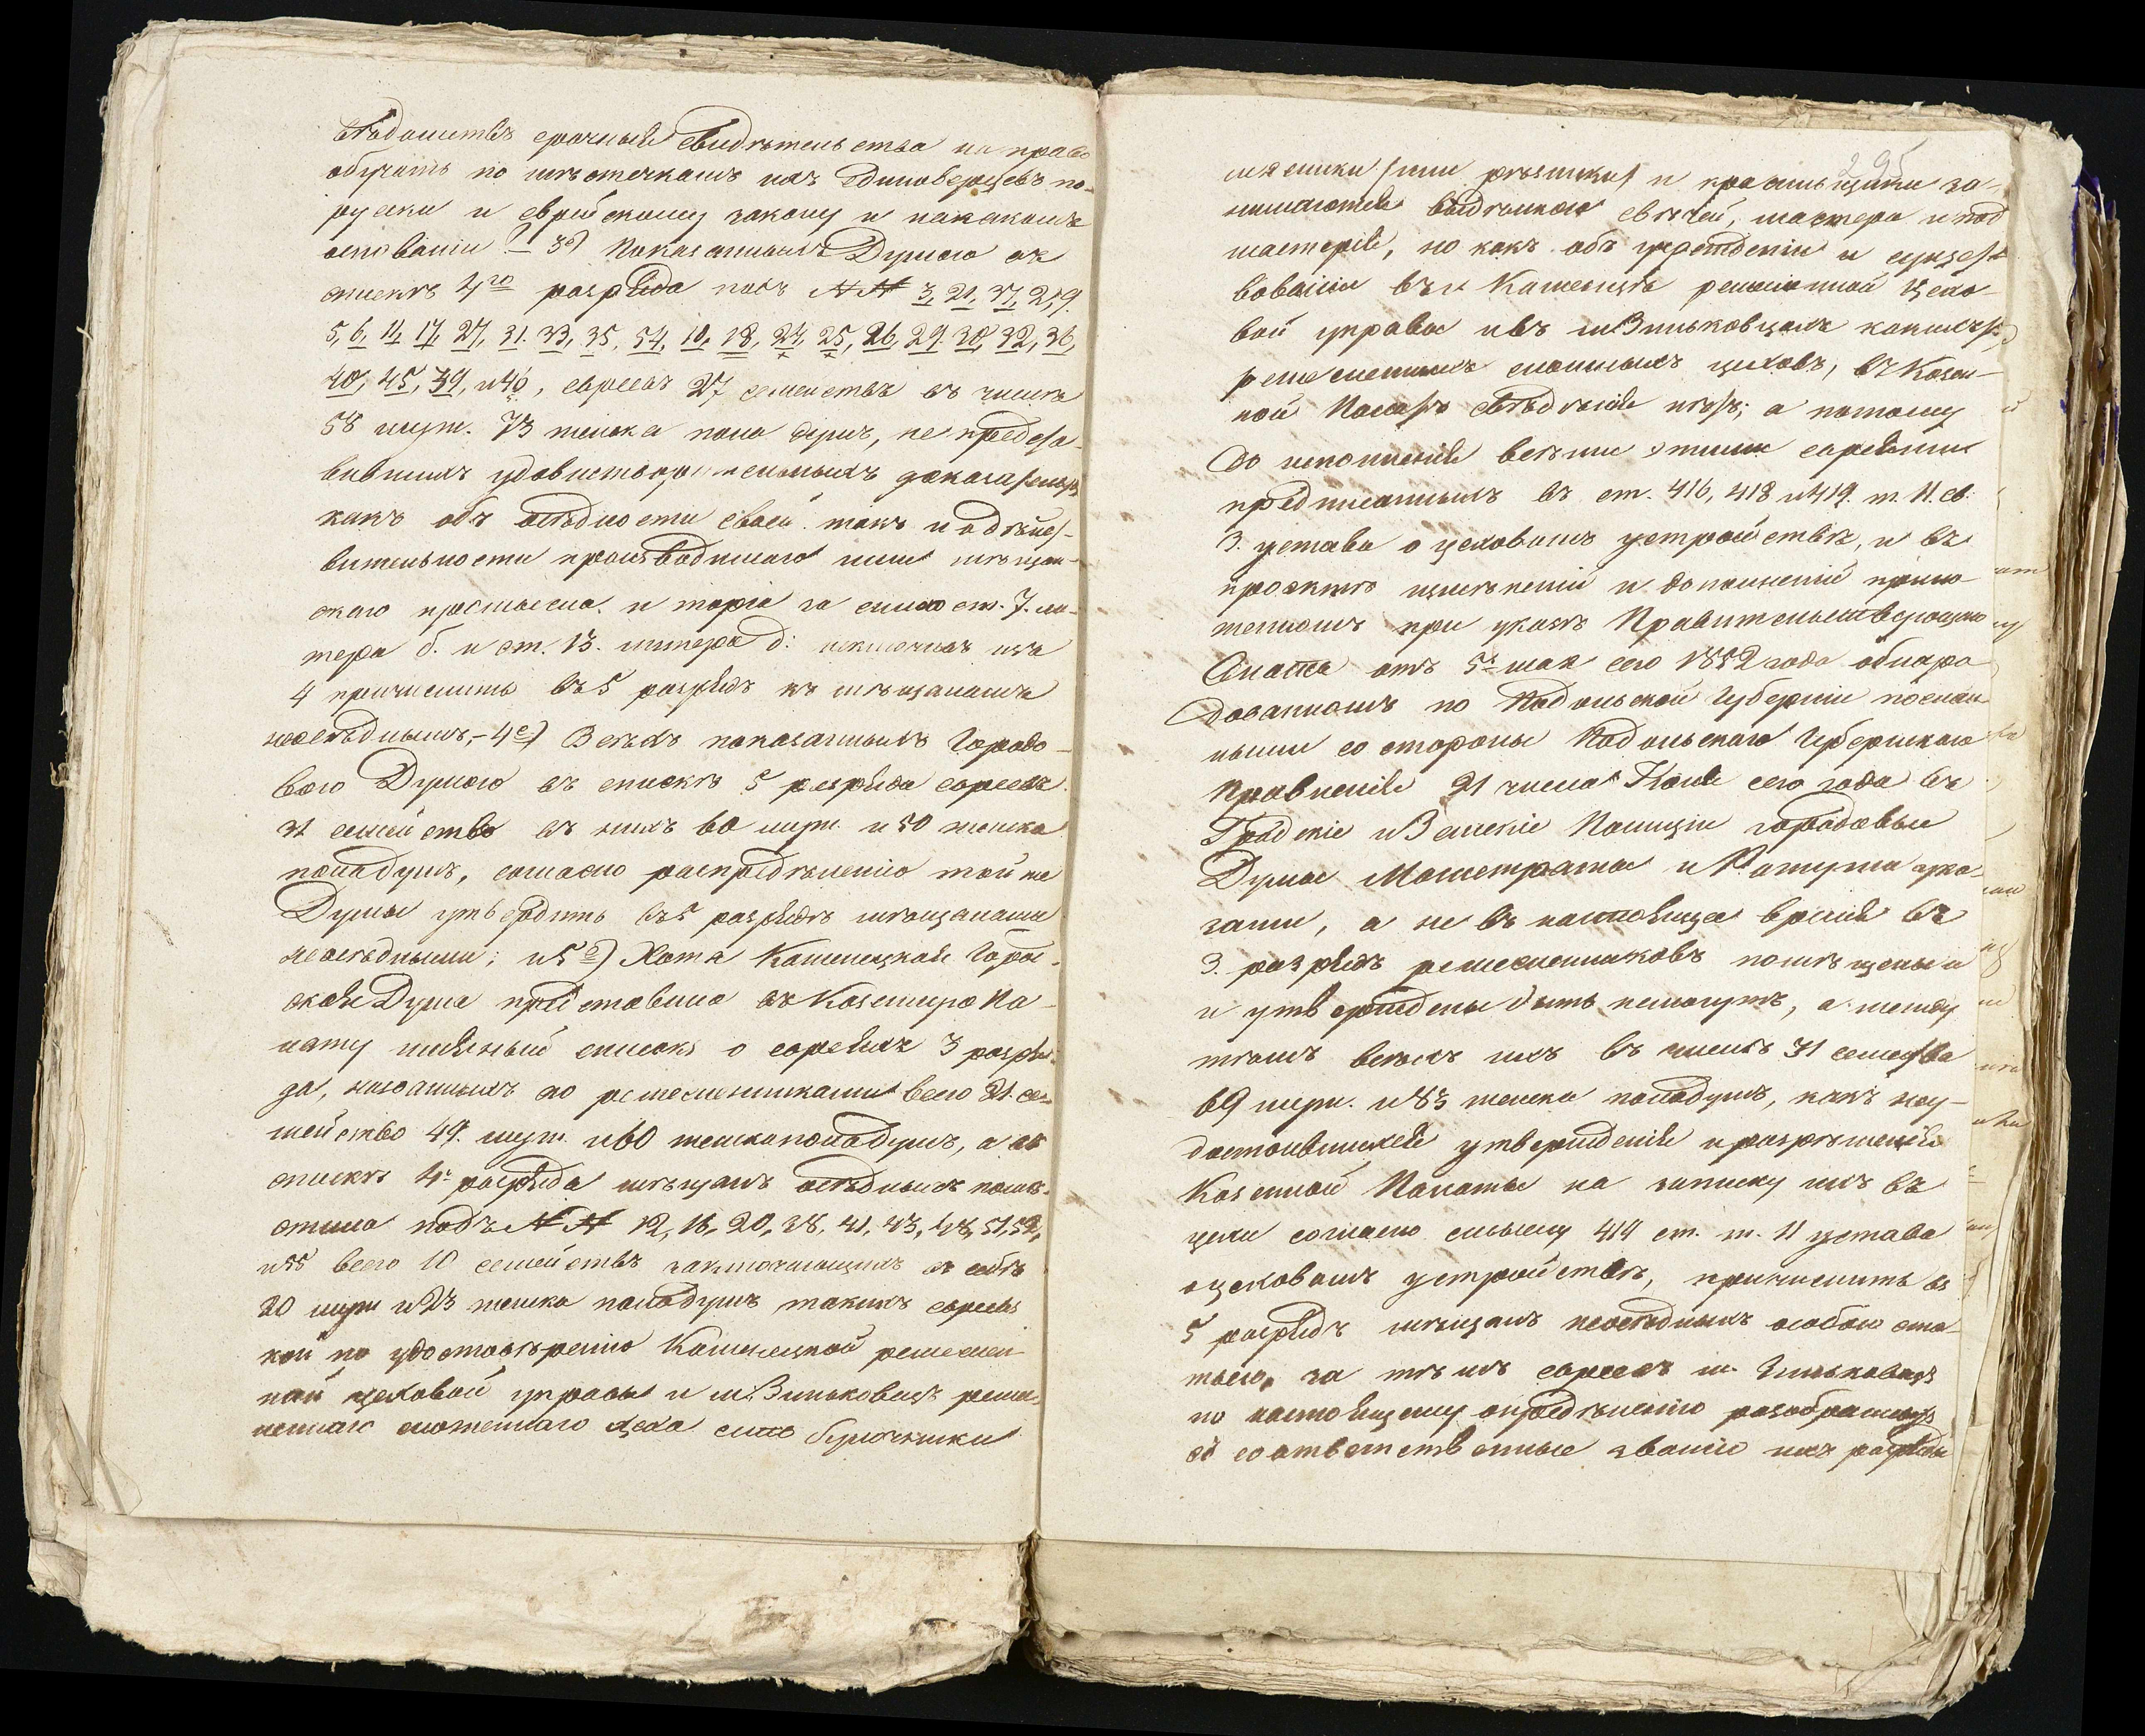 срочныя свидѣтельства на право
обучать по мѣстечкамъ ихъ единоверцевъ по-
руски и еврейскому закону и накакомъ
основаніи 3е) Показанныхъ Думою въ
спискѣ 4го разряда подъ №№ 3, 21, 37, 2, 9.
5, 6, 11, 17, 27, 31. 33, 35, 54, 10, 18, 24, 25, 26, 29. 30, 32, 36,
40, 45, 39, и 46, евреевъ 27 семействъ въ числѣ
58 муж. 73 женска пола душъ, не предста-
вившихъ удовлетворительныхъ доказательствъ
какъ объ осѣдлости своей такъ и одѣйст-
вительности производимаго ими мѣщан-
скаго промысла и торга за силою ст. 7. ли-
тера б. и ст. 13. литера д: исключивъ изъ
4 причислить въ 5 разрядъ къ мѣщанамъ
неосѣдлымъ,- 4е) Всѣхъ показанныхъ Городо-
вою Думою въ спискѣ 5 разряда евреевъ
31 семейство въ нихъ 60 муж. и 50 женска
пола душъ, согласно распредѣленію той же
Думы утвердить въ 5 разрядѣ мѣщанами
неосѣдлыми; и 5е) Хотя Каменецкая Город-
ская Дума представила въ Казенную Па-
лату именный списокъ о евреяхъ 3 разря-
да, названныхъ ею ремесленниками всего 21. се-
мейство 49. муж. и 60 женска пола душъ, а въ
спискѣ 4. разряда мѣщанъ осѣдлыхъ помѣ-
стила подъ №№ 12, 16, 20, 38, 41, 43, 48, 51, 52,
и 55 всего 10 семействъ заключающихъ въ себѣ
20 муж и 23 женска пола душъ такихъ евреевъ
кои по удостовѣренію Каменецкой ремеслен-
ной цеховой управы и м. Зиньковецъ ремес-
леннаго сложеннаго цеха суть булочники
295
мясники /или рѣзники/ и красильщики за-
нимаются выдѣлкою свѣчей, мастера и под
мастерія, но какъ объ учрежденіи и сущест
вованіи въ г. Каменцѣ ремесленной Цехо-
вой управы и въ м Зиньковцахъ какихъ
ремесленныхъ сложныхъ цеховъ, въ Казен-
ной Палатѣ свѣдѣнія нѣтъ; а потому
до исполненія всѣми этими евреями
предписанныхъ въ ст. 416, 418 и 419. т. 11. св.
З. устава о цеховомъ устройствѣ, и въ
проэктѣ измѣненій и дополненій прило-
женномъ при указѣ Правительствующаго
Сената отъ 5 мая сего 1852 года обнаро
дованномъ по Подольской Губерніи послан-
ными со стороны Подольскаго Губернскаго
Правленія 21 числа Іюня сего года въ
Градскіе и Земскіе Полиціи городовые
Думы Магистраты и Ратуши ука-
зами, а не въ настоящее время въ
3. разрядъ ремесленниковъ помѣщены
и утверждены быть немогутъ, а между
тѣмъ всѣхъ ихъ въ числѣ 31 семейства
69 муж. и 83 женска пола душъ, какъ неу-
достоившихся утвержденія и разрѣшенія
Казенной Палаты на записку ихъ въ
цехи согласно смыслу 414 ст. т. 11 устава
о цеховомъ устройствѣ, причислить въ
5 разрядъ мѣщанъ неосѣдлыхъ особою ста-
тьею, за тѣмъ евреевъ м. Зиньковецъ
по настоящему опредѣленію разобранныхъ
въ соотвѣтственные званію ихъ разряды